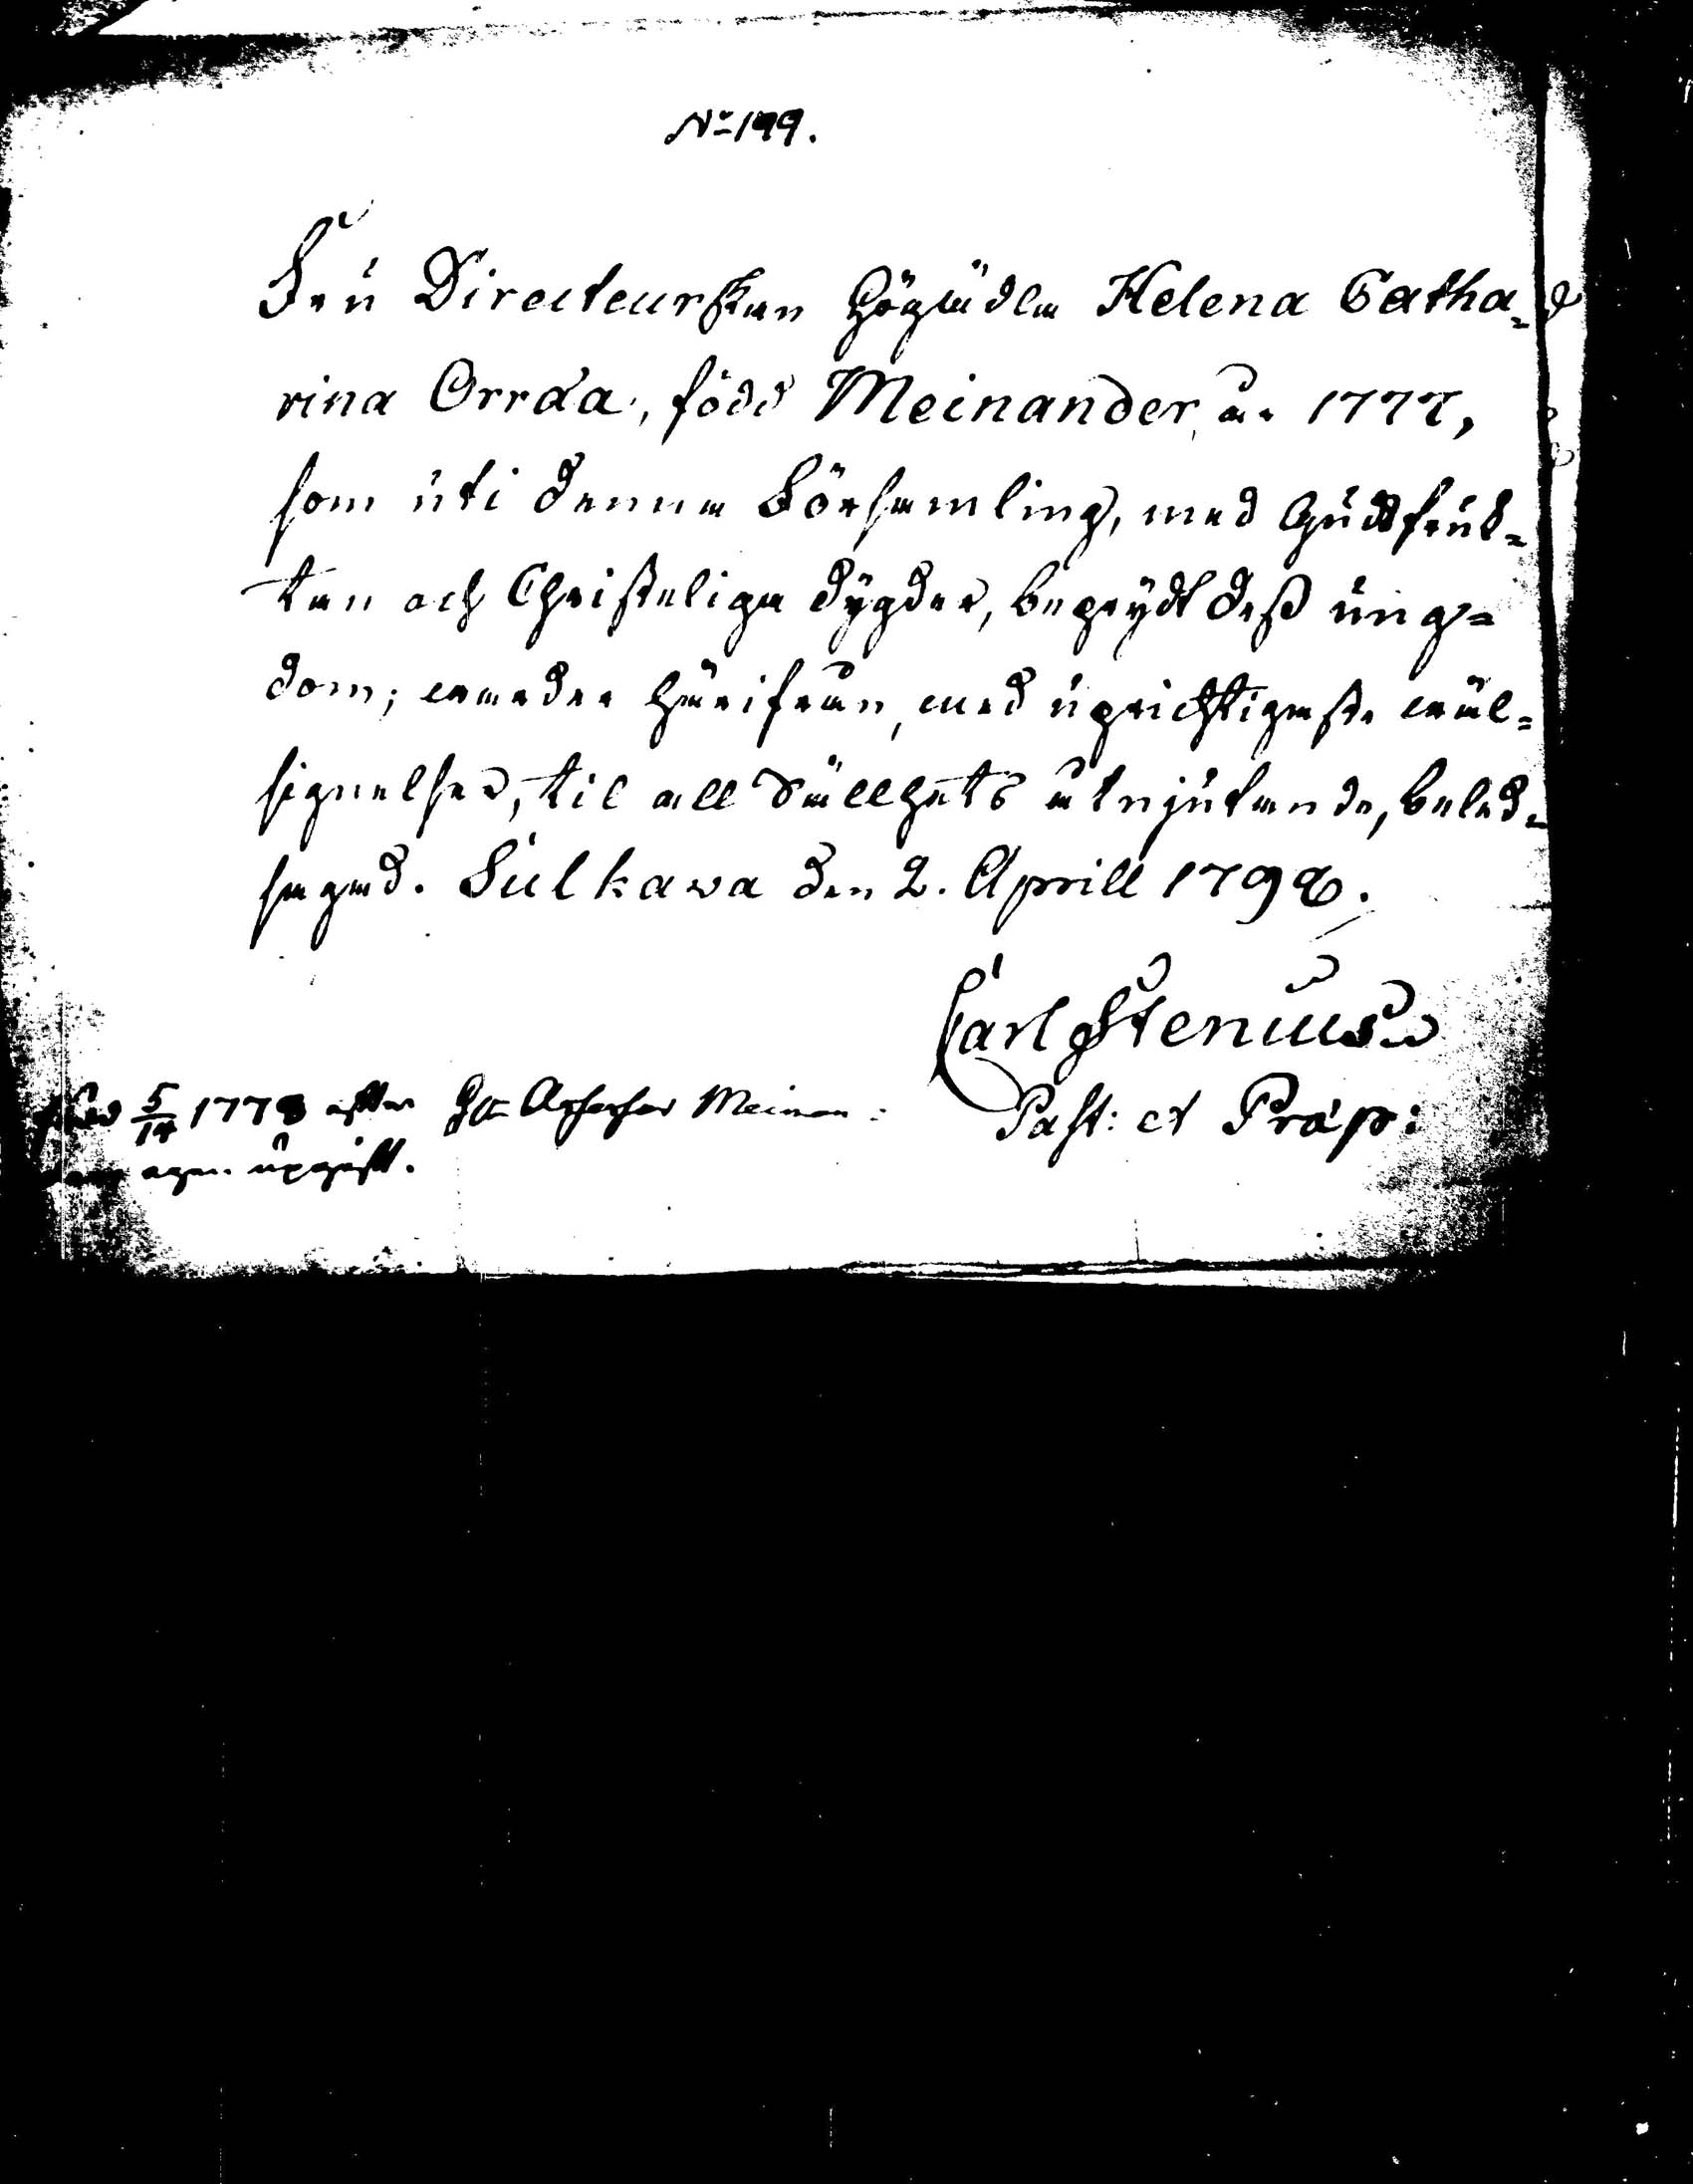 No 199.
Fru Directeurskan Högädla Helena Catha=
rina Orræa, född Meinander, år 1777,
som uti denna Församling, med Gudsfruk=
tan och Christeliga dygder, beprydt dess ung=
dom; warder härifrån, med uprichtigaste wäl=
signelser, til all Sällhets åtnjutande, beled=
sagad. Sulkava den 2. Aprill 1798.
Carl Stenius
Past: et Præp:
född 5/14 1778 efter Hr Assessor Meinan=
egen upgift.